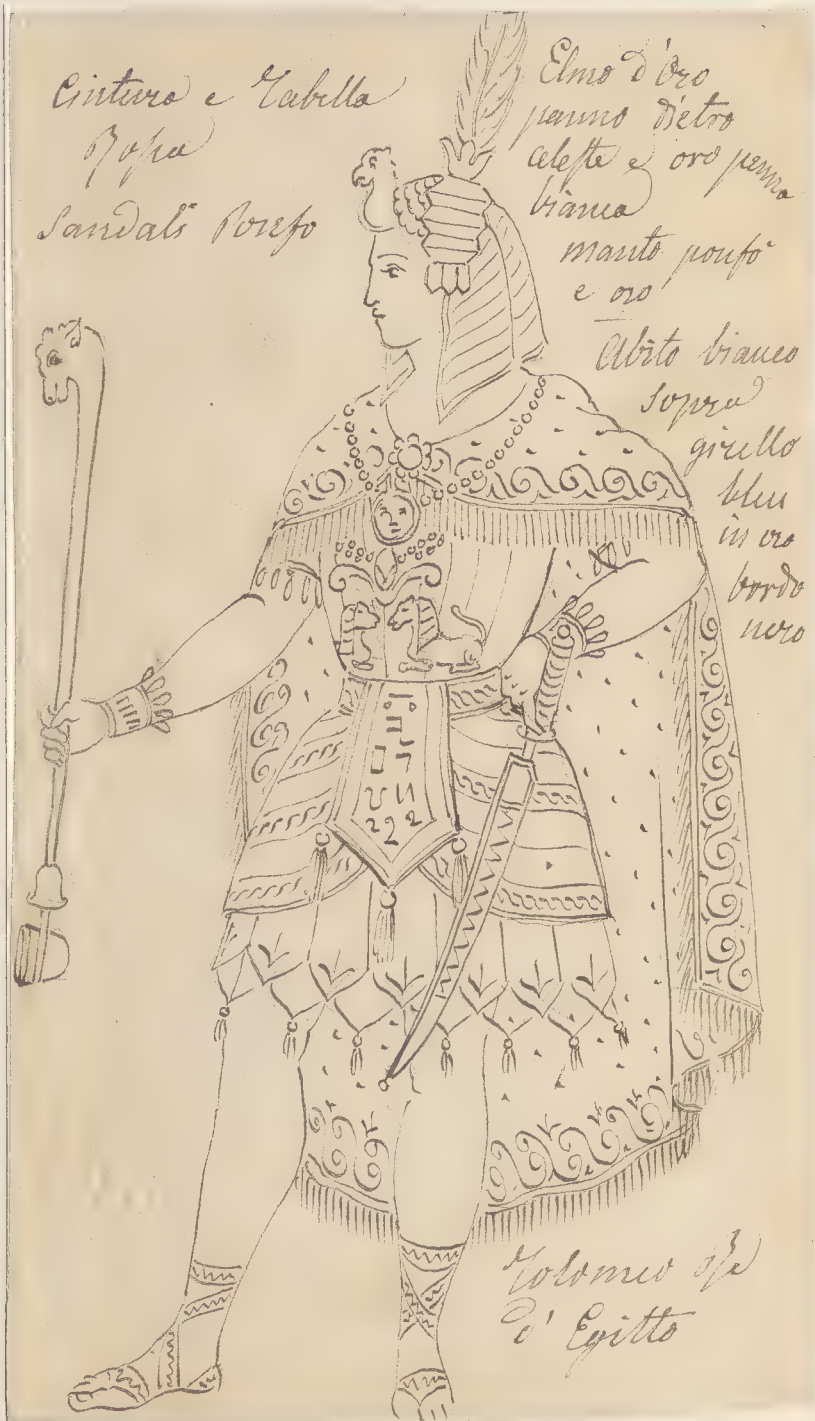 Cintura e Tabella
Rossa
Sandali Rosso
Elmo d'Oro
panno dietro
celeste e oro penna
bianca
manto ponsò
e oro
Abito bianco
sopra
girello
bleu
in oro
bordo
nero
Tolomeo Re
d'Egitto